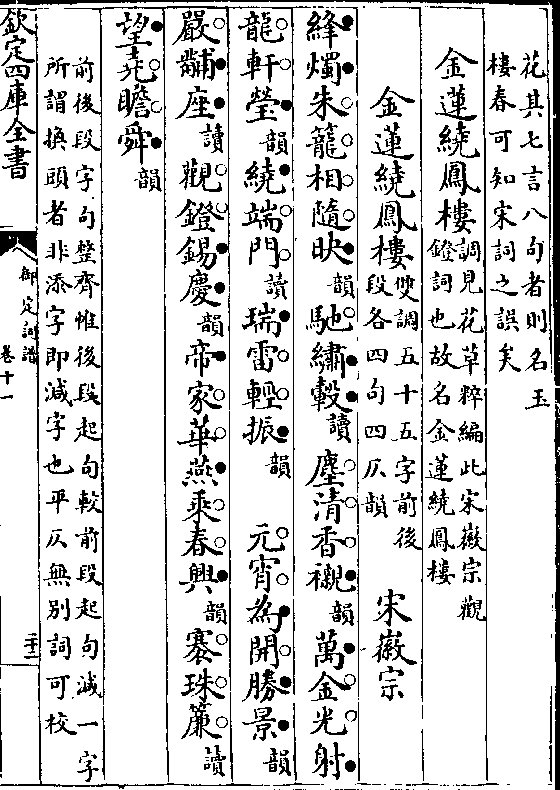 花其七言八句者則名玉
樓春可知宋詞之誤矣
金蓮繞鳳樓調見花草粹編此宋徽宗觀
鐙詞也故名金蓮繞鳳樓
金蓮繞鳳樓雙調五十五字前後
段各四句四仄韻 宋徽宗
絳燭朱籠相隨映韻馳繡轂讀塵清香襯韻萬金光射
龍軒瑩韻繞端門讀瑞雷輕振韻 元宵為開勝景韻
嚴黼座讀觀鐙錫慶韻帝家華燕乘春興韻褰珠簾讀
望堯瞻舜韻
前後段字句整齊惟後段起句較前段起句減一字
所謂換頭者非添字即減字也平仄無別詞可校
欽定四庫全書
御定詞譜
卷十一
二十二